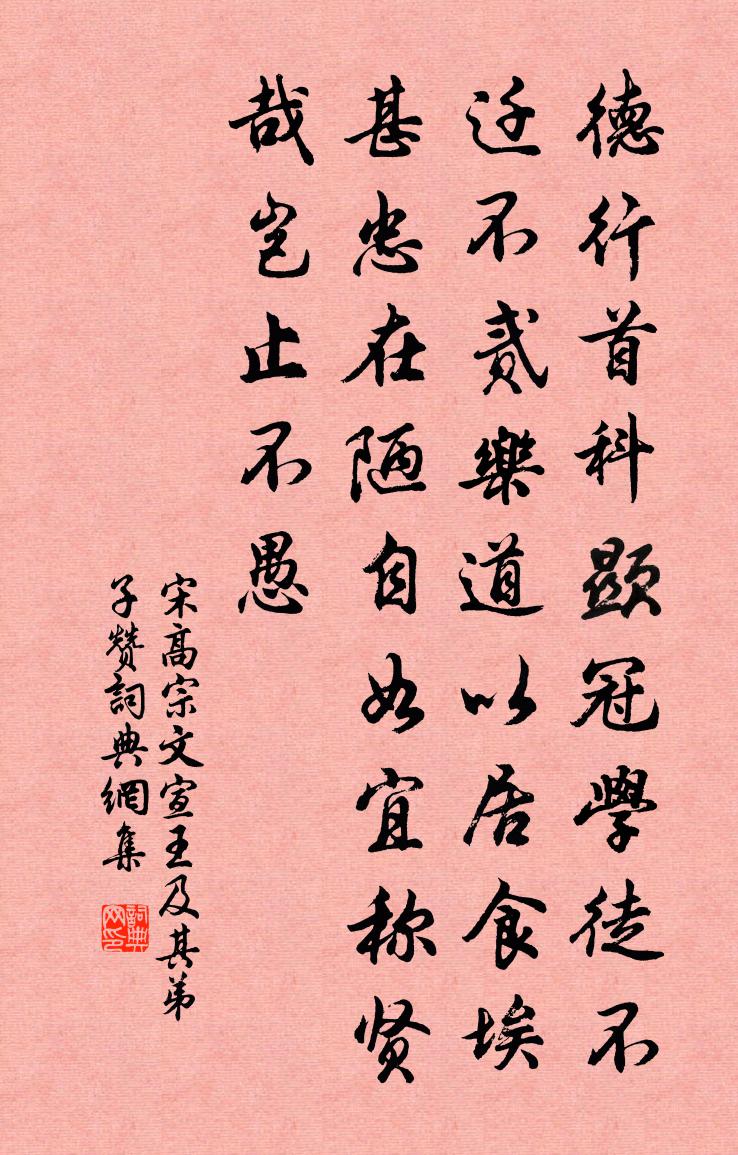 德行首科顕冠學徒不
迁不贰樂道以居食埃
甚忠在陋自如宜称贤
哉岂止不愚
宋高宗文宣王及其弟
子赞詞典網集
詞典网印